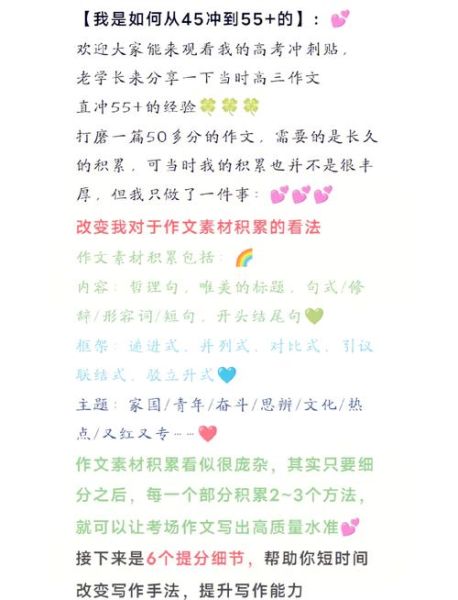 【我是如何从45冲到55+的】：💕
欢迎大家能来观看我的高考冲刺贴，
老学长来分享一下当时高三作文
直冲55+的经验🍀🍀🍀
打磨一篇50多分的作文，需要的是长久
的积累，可当时我的积累也并不是很丰
厚，但我只做了一件事：💕💕💕
改变我对于作文素材积累的看法
作文素材积累包括：🌈
内容：哲理句，唯美的标题，句式/修
辞/形容词/短句，开头结尾句💚
框架：递进式，并列式，对比式，引议
联结式，驳立升式🩵
主题：家国/青年/奋斗/思辨/文化/热
点/又红又专……❤️
作文素材积累看似很庞杂，其实只要细
分之后，每一个部分积累2~3个方法，
就可以让考场作文写出高质量水准💕
接下来是6个提分细节，帮助你短时间
改变写作手法，提升写作能力